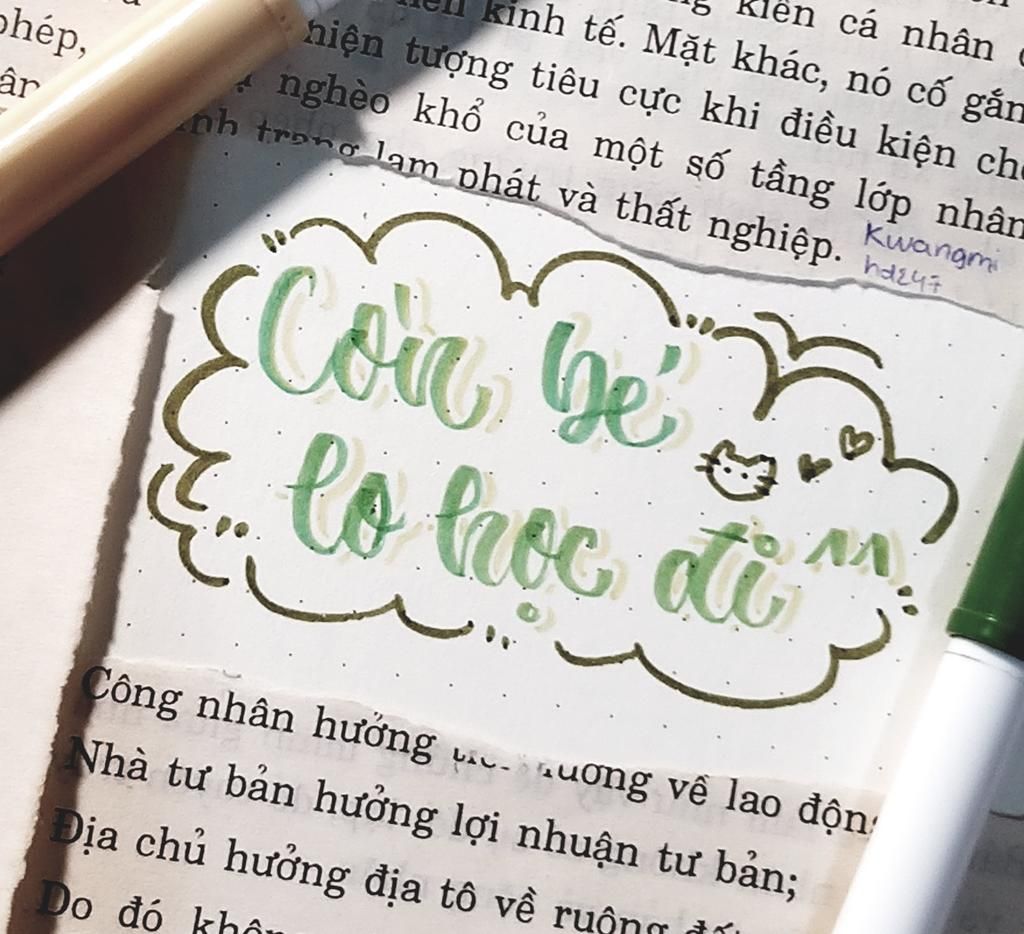 phép,
nền kinh tế. Mặt khác, nó cố gắn
kiến cá nhân
hiện tượng tiêu cực khi điều kiện
nghèo khổ của một số tầng lớp nhân
lạm phát và thất nghiệp.
Kwangmi
hd247
Còn bé
lo học đi ^^
Công nhân hưởng về lao động
Nhà tư bản hưởng lợi nhuận tư bản;
Địa chủ hưởng địa tô về ruộng
Do đó